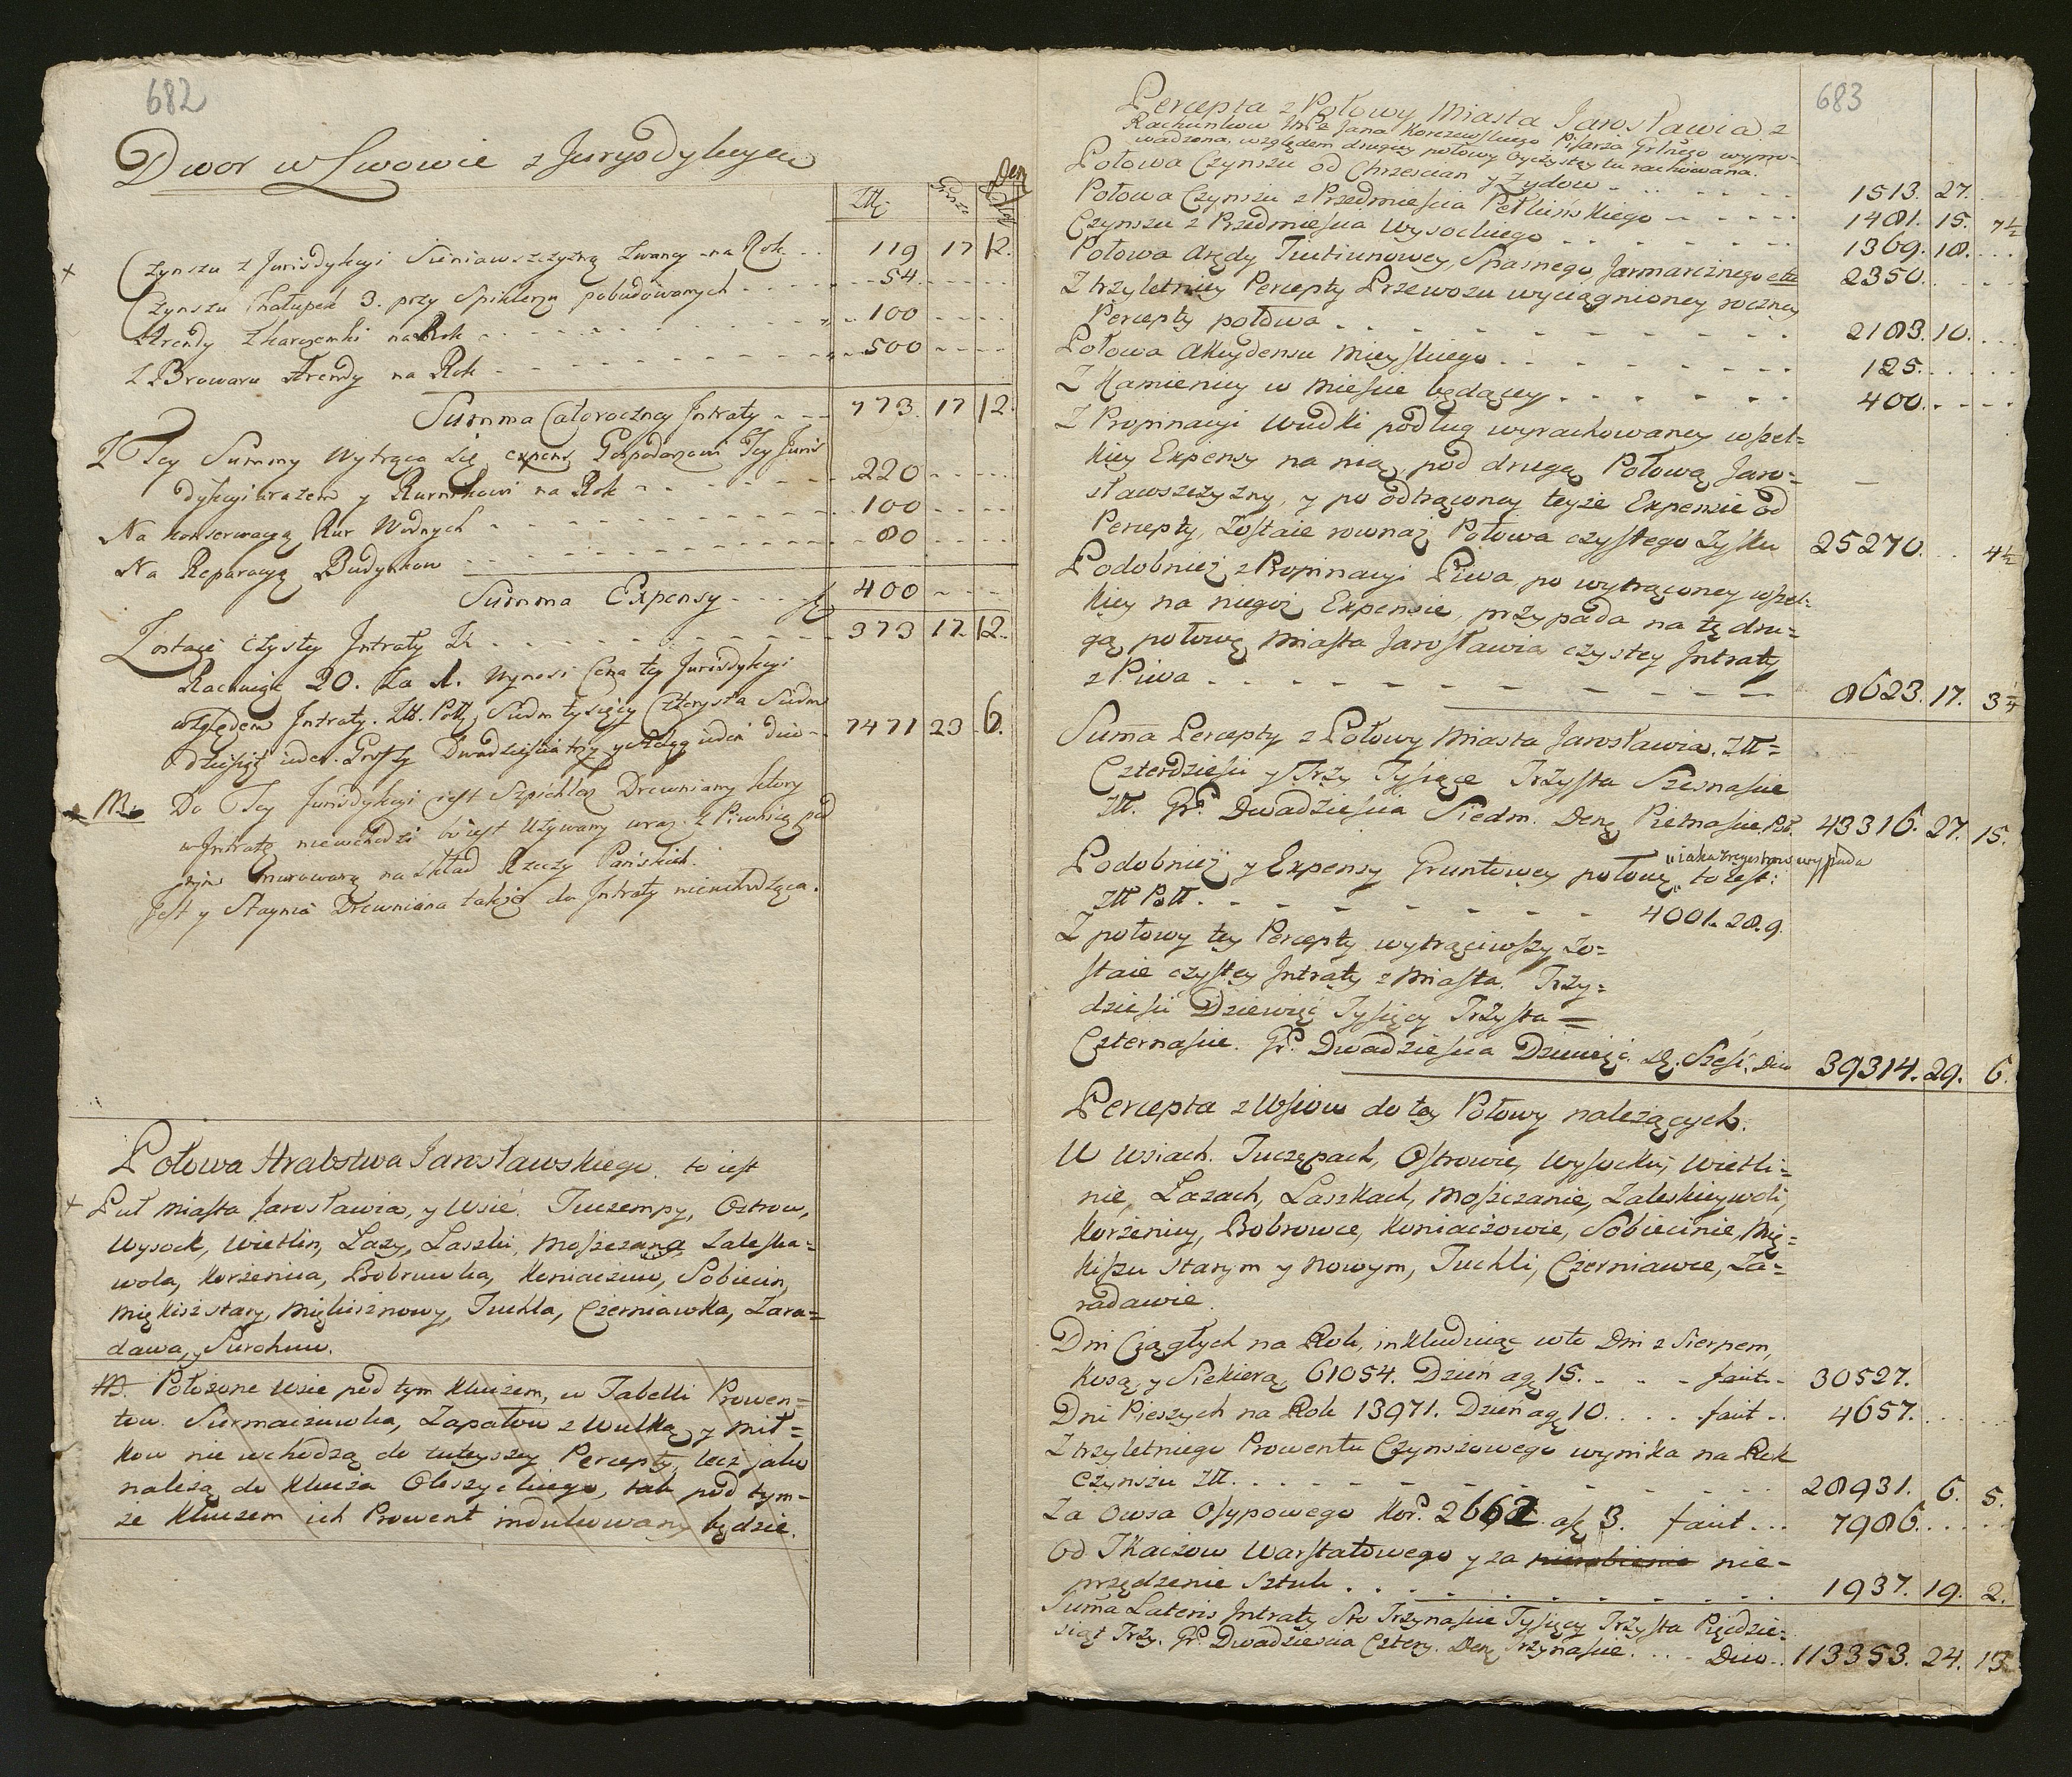 682
Dwor w Lwowie z Jurysdykcyą
Złł: Grosze Den:
Czynszu z Jurisdykcyi Sieniawszczyzną zwaney na Rok 119 17 12.
Czynszu Chałupek 3. przy Spiklerzu pobudowanych 54.
Arendy z karczemki na Rok 100
Z Browaru Arendy na Rok 500
Summa Całoroczney Intraty 773. 17 12.
Z Tey Summy Wytrąca się expens Gospodarzowi Tey Juris
dykcyi wrazem y Rurnikowi na Rok 220
Na konserwacyą Rur Wodnych 100
Na Reparacyą Budynkow 80
Summa Expensy 400
Zostaie czystey Intraty Zł. 373 17. 12.
Rachuiąc 20. za 1. wynosi Cena tey Jurisdykcyi
względem Intraty. Złł. Poll. Siedm tysięcy Czterysta Siedm
dziesiąt ieden. Groszy Dwadzieścia trzy y 7471 23 6.
NB. Do Tey Jurisdykcyi iest Szpichlerz Drewniany ktory
w Intratę niewchodzi bo iest Używany wraz z Piwnicą pod
nim murowaną na skład Rzeczy Pańskich.
Jest y Staynia Drewniana także do Intraty niewchodząca.
Połowa Hrabstwa Jarosławskiego to iest
Puł Miasta Jarosławia, y Wsie. Tuczempy, Ostrow,
Wysock, Wietlin, Łazy, Laszki, Moszczana, Zaleska=
wola, Korzenica, Bobrowka, Koniaczow, Sobiecin,
Miękisz stary, Miękisz nowy, Tuchla, Czerniawka, Zara=
dawa, y Surohow.
NB. Położone Wsie pod tym Kluczem, w Tabelli Prowen=
tow. Surmaczowka, Zapałow z Wulką y Mił=
kow nie wchodzą do tuteyszey Percepty, lecz jako
należą do Klucza Oleszyckiego, tak pod tym=
że Kluczem ich Prowent indukowany będzie.
683
Percepta z Połowy Miasta Jarosławia z
Rachunkow Jana Korczewskiego Pisarza Grłnego wypro=
wadzona, względem drugiey połowy Oyczystey tu rachowana.
Połowa Czynszu od Chrzescian y Zydow 1513. 27.
Połowa Czynszu z Przedmieścia Pełkińskiego 1401. 15. 7½
Czynszu z Przedmieścia Wysockiego 1369. 18.
Połowa Arędy Tiutiunowey, Spasnego, Jarmarcznego etc 2350.
Z trzyletniey Percepty Przewozu wyciągnioney roczney
Percepty połowa 2183. 10.
Połowa Akcydensu Mieyskiego 125.
Z Kamienicy w mieście będącey 400.
Z Propinacyi Wudki podług wyrachowaney wszel=
kiey Expensy na nią, pod drugą Połową Jaro=
sławszczyzny, y po odtrąconey teyże Expensie od
Percepty, zostaie rownaż Połowa czystego Zysku 25270. 4½
Podobnież z Propinacyi Piwa, po wytrąconey wszel=
kiey na niegoż Expensie, przypada na tę dru=
gą połowę Miasta Jarosławia czystey Intraty
z Piwa 8623. 17. 3¾
Suma Percepty z Połowy Miasta Jarosławia. Złł=
Czterdzieści y Trzy Tysiące Trzysta Szesnaście
Złł. Gr. Dwadzieścia Siedm. Den. Pietnaście, Pol. 43316. 27. 15.
iaka z regestrow wypada
Podobnież y Expensy Gruntowey połowę, to iest:
Złł Poll. 4001. 28. 9.
Z połowy tey Percepty wytrąciwszy zo=
staie czystey Intraty z Miasta. Trzy=
dzieści Dziewięć Tysięcy Trzysta =
Czternaście. Gr. Dwadzieścia Dziewięć. d. Sześć, Dico 39314. 29. 6.
Percepta z Wsiow do tey Połowy należących.
W Wsiach. Tuczępach, Ostrowie, Wysocku, Wietli=
nie, Łazach, Laszkach, Moszczanie, Zaleskieywoli,
Korzenicy, Bobrowce, Koniaczowie, Sobiecinie, Mię=
kiszu Starym y Nowym, Tuchli, Czerniawce, Za=
radawie.
Dni Ciągłych na Rok, inkluduiąc w to Dni z Sierpem,
Kosą, y Siekierą 61054. Dzień a g. 15. facit 30527.
Dni Pieszych na Rok 13971. Dzień a g. 10. facit 4657.
Z trzyletniego Prowentu Czynszowego wynika na Rok
Czynszu Złł. 28931. 6. 5.
Za Owsa Osypowego Kor. 2662 a f. 3. facit 7986.
Od Tkaczow Warstatowego y za nie=
przędzenie Sztuk 1937. 19. 2.
Suma Lateris Intraty Sto Trzynaście Tysięcy Trzysta Pięćdzie=
siąt Trzy. Gr. Dwadzieścia Cztery. Den. Trzynaście. Dico 113353. 24. 13